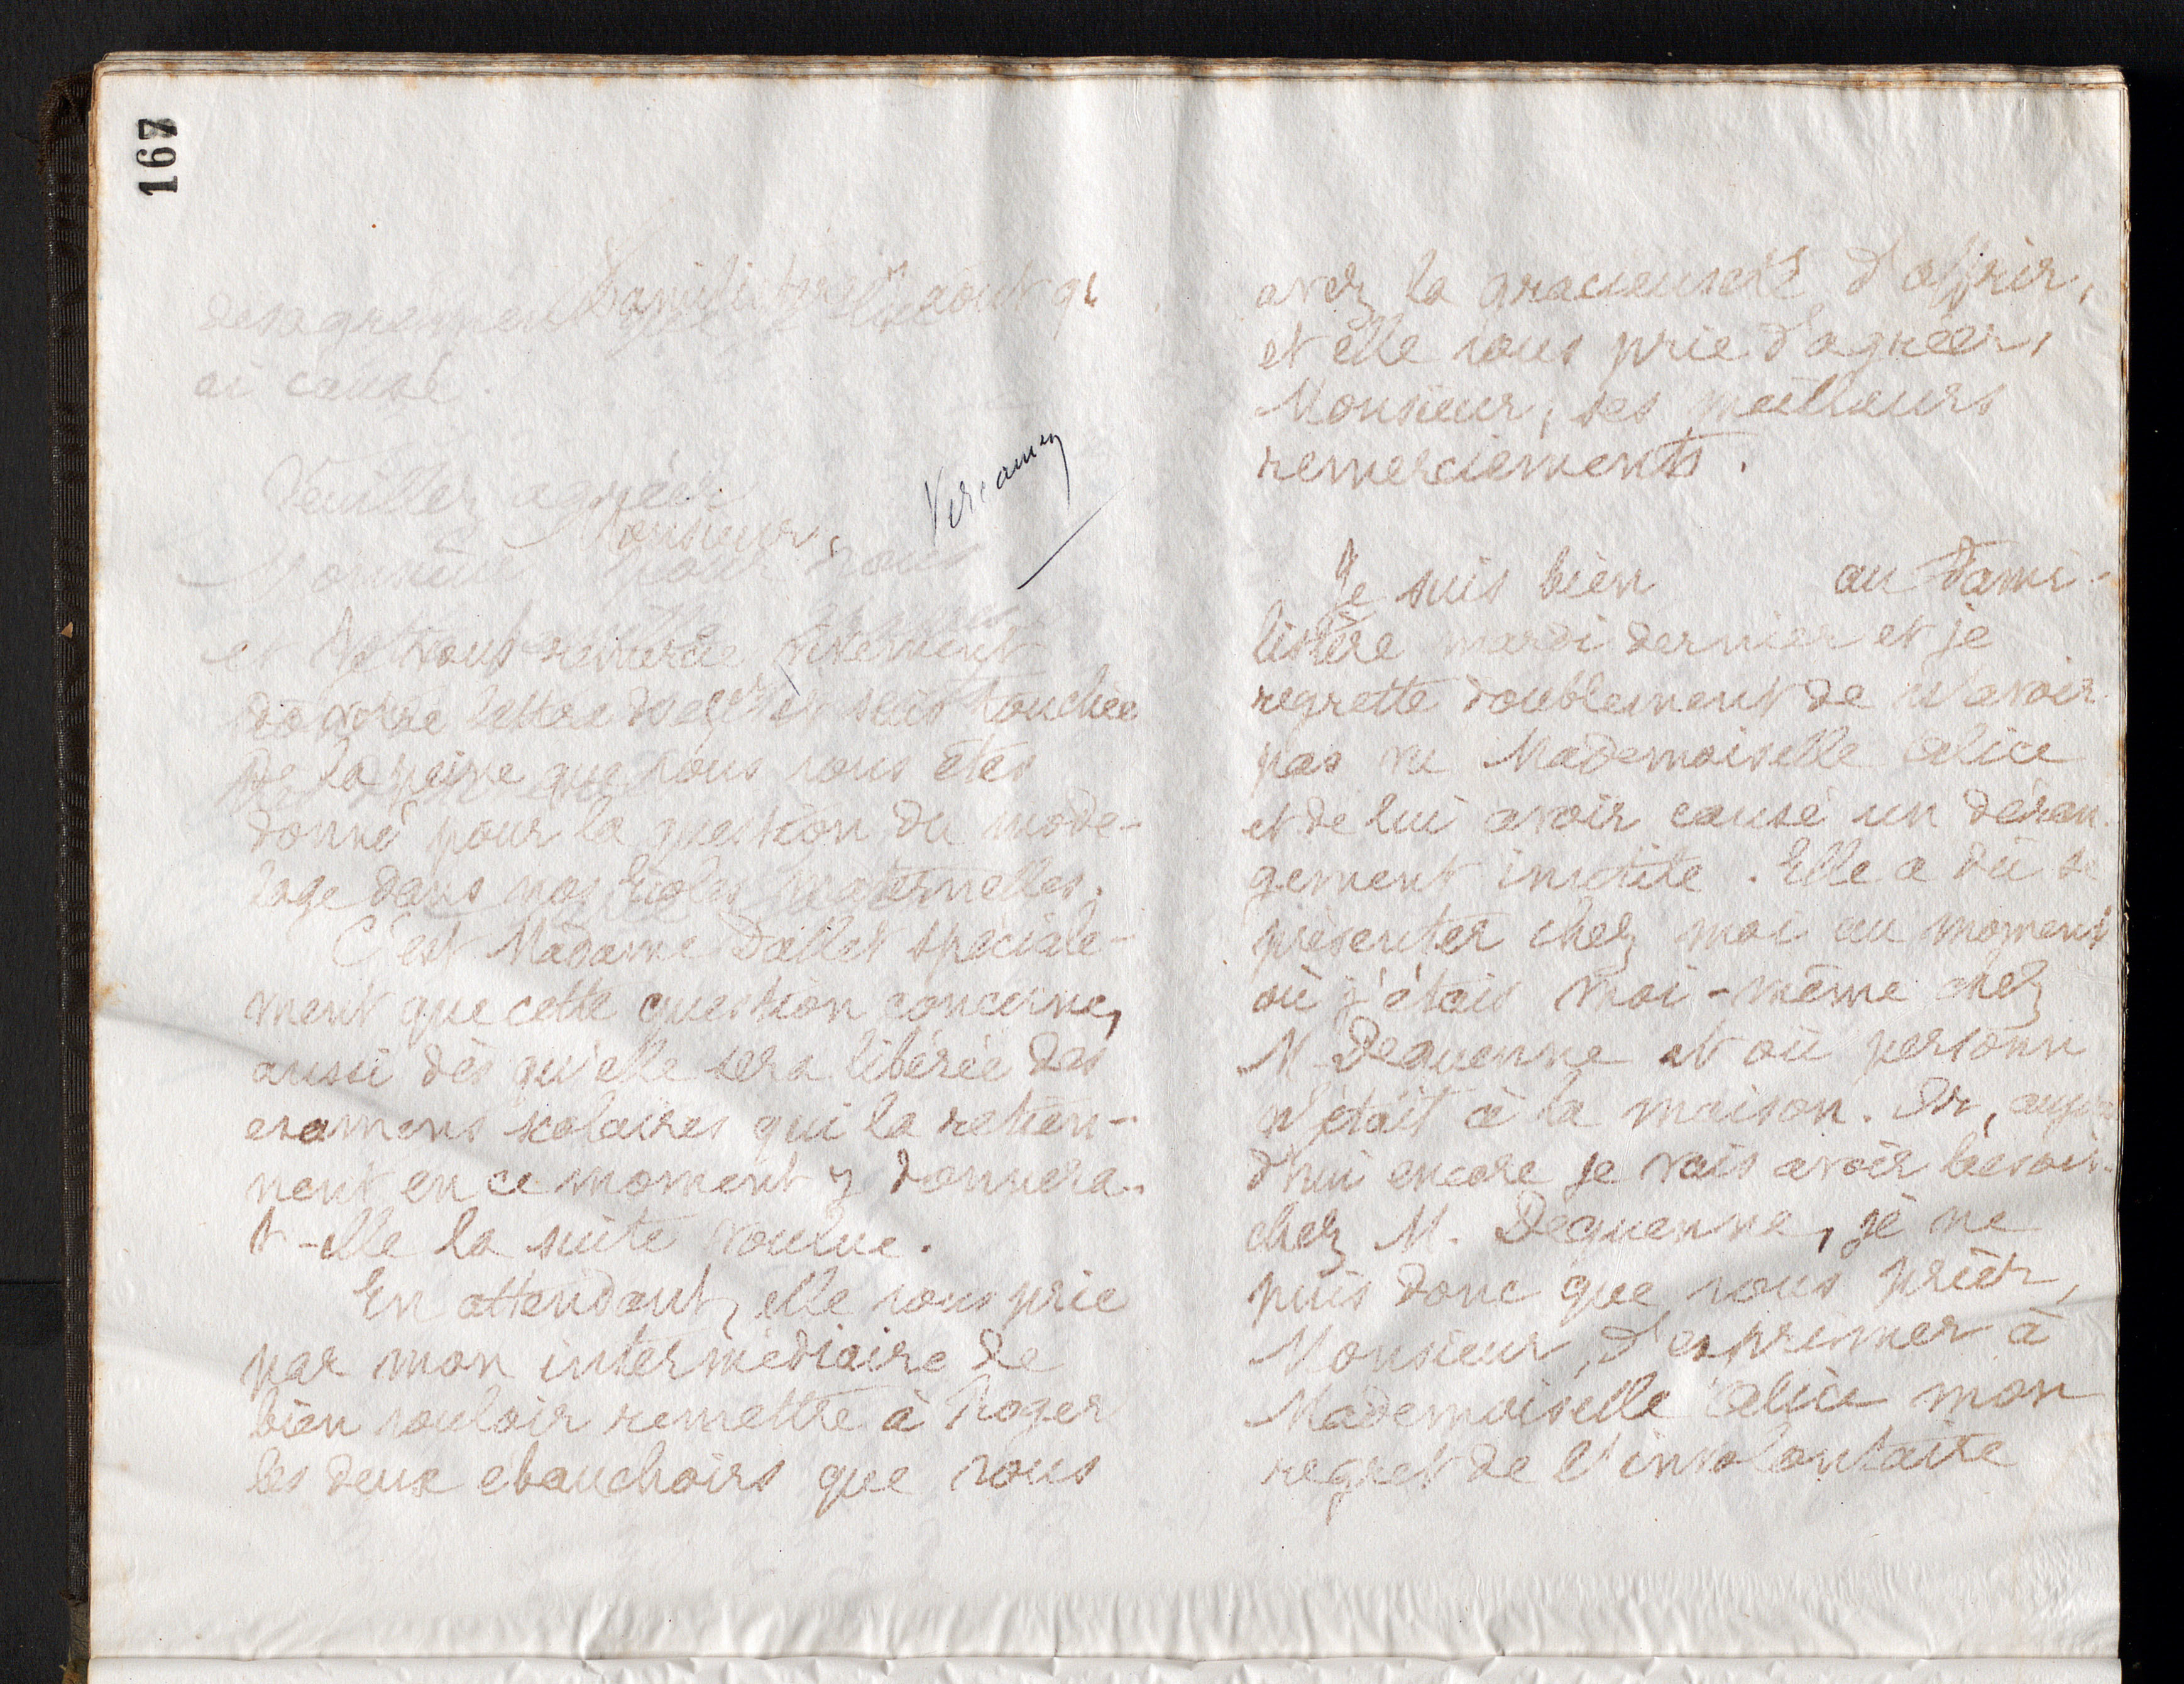 167
Familistère août 91
désagrément que je lui
ai causé.
Veuillez agréer
Monsieur,
Vercamen
Monsieur pour vous
et
Je vous remercie vivement
de votre lettre du et suis touchée
de la peine que vous vous êtes
donné pour la question du mode-
lage dans nos Ecoles maternelles.
C'est Madame Dallet spéciale-
ment que cette question concerne,
aussi dès qu'elle sera libérée des
examens scolaires qui la retien-
nent en ce moment y donnera-
t-elle la suite voulue.
En attendant, elle vous prie
par mon intermédiaire de
bien vouloir remettre à Roger
les deux ebauchoirs que vous
avez la gracieuseté d'offrir,
et elle vous prie d'agréer,
Monsieur, ses meilleurs
remerciements.
Je suis bien au Fami-
listère mardi dernier et je
regrette doublement de n'avoir
pas vu Mademoiselle Alice
et de lui avoir causé un déran-
gement inutile. Elle a dû se
présenter chez moi au moment
où j'étais moi-même chez
M. Dequenne et où personn
n'était à la maison. Or, aujour
d'hui encore je vais avoir besoin
chez M. Dequenne, je ne
puis donc que vous prier,
Monsieur, d'exprimer à
Mademoiselle Alice mon
regret de l'involontaire